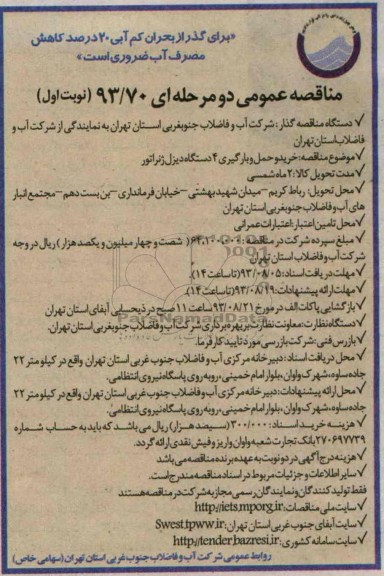 «برای گذر از بحران کم آبی ۲۰ درصد کاهش
مصرف آب ضروری است»
مناقصه عمومی دو مرحله ای ۹۳/۷۰ (نوبت اول)
✓ دستگاه مناقصه گذار: شرکت آب و فاضلاب جنوبغربی استان تهران به نمایندگی از شرکت آب و
فاضلاب استان تهران
✓ موضوع مناقصه: خرید و حمل و بارگیری ۴ دستگاه دیزل ژنراتور
✓ مدت تحویل کالا: ۲ ماه شمسی
✓ محل تحویل: رباط کریم – میدان شهید بهشتی – خیابان فرمانداری – بن بست دهم – مجتمع انبار
های آب و فاضلاب جنوبغربی استان تهران
✓ محل تامین اعتبار: اعتبارات عمرانی
✓ مبلغ سپرده شرکت در مناقصه: ۶۴،۱۰۰،۰۰۰( شصت و چهار میلیون و یکصد هزار) ریال در وجه
شرکت آب و فاضلاب استان تهران
✓ مهلت دریافت اسناد: ۹۳/۰۸/۰۵ (تا ساعت ۱۴).
✓ مهلت ارائه پیشنهادات: ۹۳/۰۸/۱۹ (تا ساعت ۱۴).
✓ بازگشایی پاکات الف در مورخ ۹۳/۰۸/۲۱ ساعت ۱۱ صبح در ذیحسابی آبفای استان تهران
✓ دستگاه نظارت: معاونت نظارت بر بهره برداری شرکت آب و فاضلاب جنوبغربی استان تهران.
✓ بازرس فنی: شرکت بازرسی مورد تایید کارفرما.
✓ محل دریافت اسناد: دبیرخانه مرکزی آب و فاضلاب جنوب غربی استان تهران واقع در کیلومتر ۲۲
جاده ساوه، شهرک واوان، بلوار امام خمینی، روبه روی پاسگاه نیروی انتظامی.
✓ محل ارائه پیشنهادات: دبیرخانه مرکزی آب و فاضلاب جنوب غربی استان تهران واقع در کیلومتر ۲۲
جاده ساوه، شهرک واوان، بلوار امام خمینی، روبه روی پاسگاه نیروی انتظامی.
✓ هزینه خرید اسناد: ۳۰۰/۰۰۰ (سیصد هزار) ریال می باشد که باید به حساب شماره
۲۷۰۶۹۷۷۳۹ بانک تجارت شعبه واوان واریز و فیش نقدی ارائه گردد.
✓ هزینه درج آگهی در دو نوبت به عهده برنده مناقصه می باشد
✓ سایر اطلاعات و جزئیات مربوط در اسناد مناقصه مندرج است.
فقط تولید کنندگان و نمایندگان رسمی مجاز به شرکت در مناقصه هستند
✓ سایت ملی مناقصات: http://iets.mporg.ir
✓ سایت آبفای جنوب غربی استان تهران: Swest.tpww.ir
✓ سایت سامانه کشوری: http://tender.bazresi.ir
روابط عمومی شرکت آب و فاضلاب جنوب غربی استان تهران (سهامی خاص)
ParsNamadData